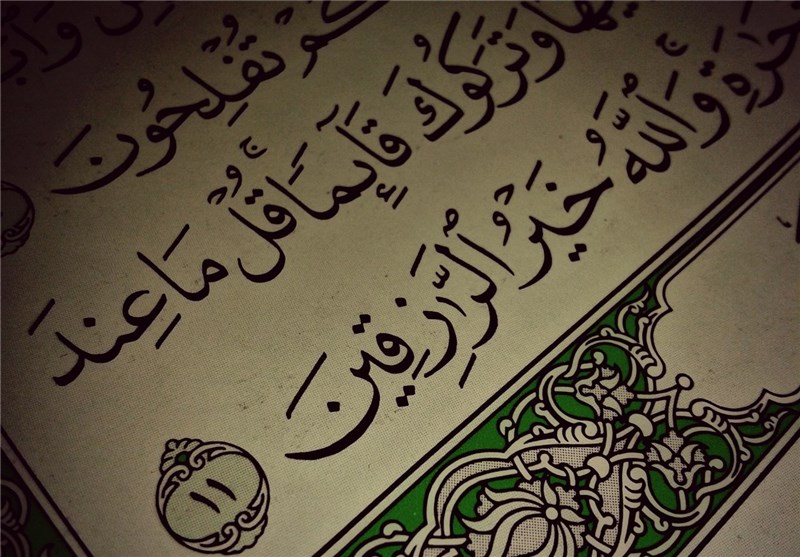 تُفْلِحُونَ
وَتَرَكُوكَ قَآئِمًا قُلْ مَا عِندَ
وَاللَّهُ خَيْرُ الرَّزِقِينَ
١١